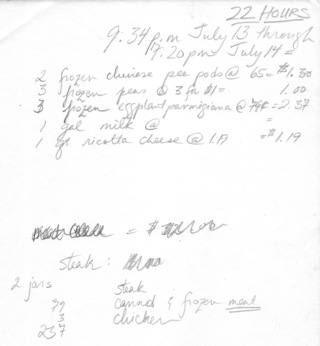 22 HOURS
9:34 p.m July 13 through
7:20 pm July 14 =
2 frozen chinese pea pods @ 65 = $1.30
3 frozen peas @ 3 for $1 = 1.00
3 frozen eggplant parmigiana @ 79¢ = 2.37
1 gal milk @ =
1 qt ricotta cheese @ 1.19 = $1.19
= $
steak:
2 jars steak
79 canned & frozen meat
3 chicken
237